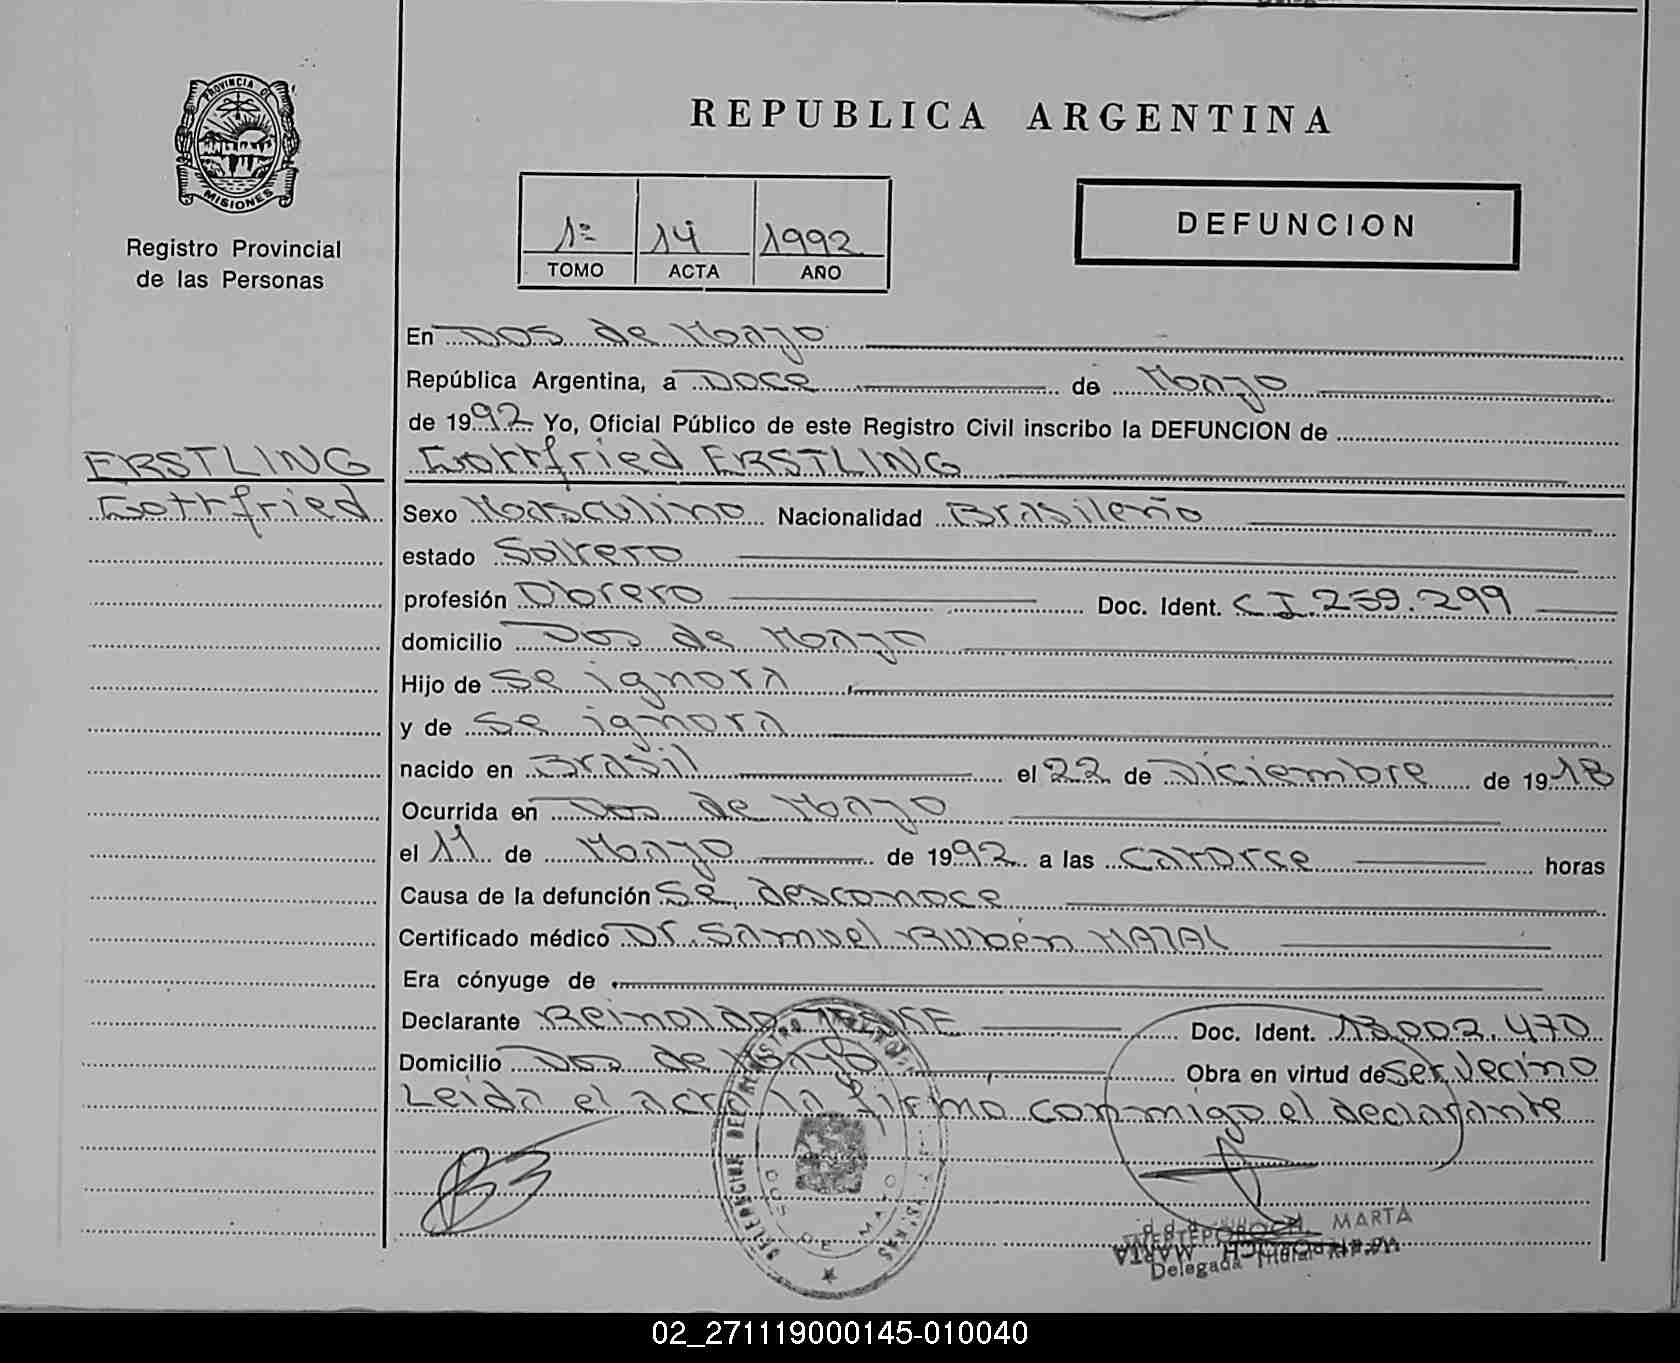 PROVINCIA D
MISIONES
Registro Provincial
de las Personas
REPUBLICA ARGENTINA
1º 14 1992
TOMO ACTA AÑO
DEFUNCION
En Dos de Mayo
República Argentina, a Doce de Mayo
de 1992 Yo, Oficial Público de este Registro Civil inscribo la DEFUNCION de
ERSTLING Gottfried ERSTLING
Gottfried Sexo Masculino Nacionalidad Brasileño
estado Soltero
profesión Obrero Doc. Ident. C.I. 259.299
domicilio Dos de Mayo
Hijo de se ignora
y de se ignora
nacido en Brasil el 22 de Diciembre de 1918
Ocurrida en Dos de Mayo
el 11 de Mayo de 1992 a las catorse horas
Causa de la defunción Se desconoce
Certificado médico Dr. Samuel Rubén MAZAL
Era cónyuge de
Declarante Reinoldo Doc. Ident. 13.002.470
Domicilio Dos de Mayo Obra en virtud de ser vecino
Leída el acta la firma conmigo el declarante
DOS DE MAYO
MARTA
MARTA
Delegada
02_271119000145-010040